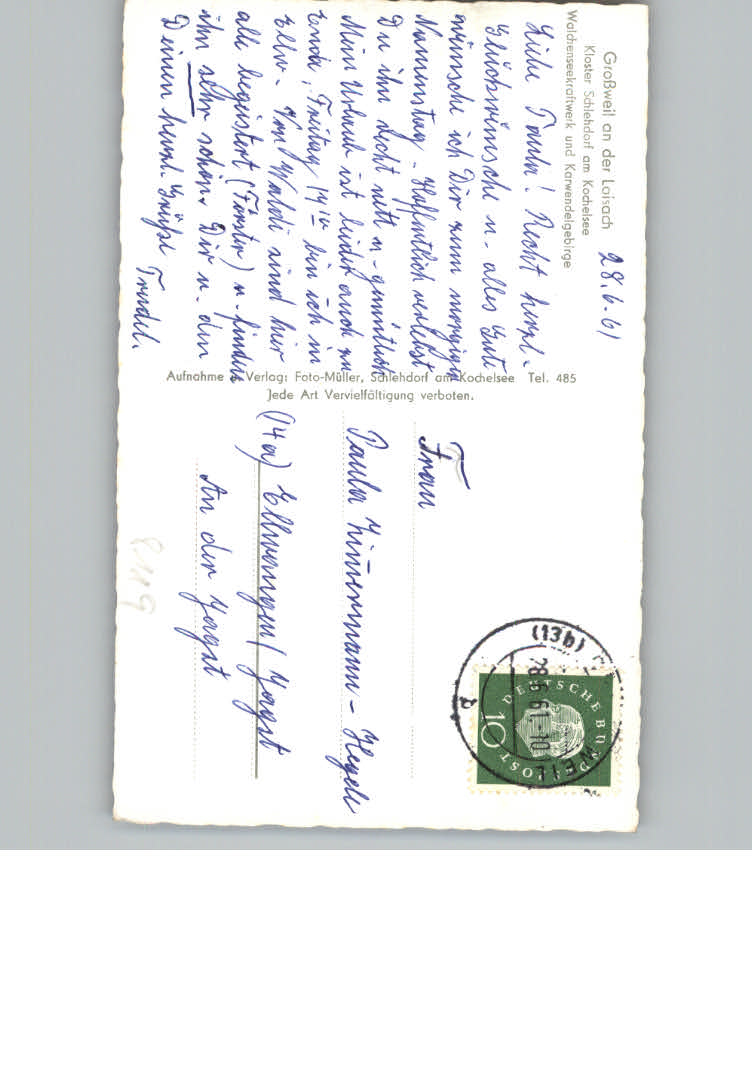 Großweil an der Loisach
Kloster Schlehdorf am Kochelsee
Walchenseekraftwerk und Karwendelgebirge
28.6.61
Liebe Paula! Recht herzl.
Glückwünsche u. alles Gute
wünsche ich Dir zum morgigen
Namenstag. Hoffentlich verlebst
Du ihn recht nett u. gemütlich.
Mein Urlaub ist leider auch zu
Ende, Freitag 19 bin ich in
Ellw. Vom Waldi sind hier
alle begeistert (Förster) u. finden
ihn sehr schön. Dir u. den
Deinen herzl. Grüße
Trudel.
Aufnahme u. Verlag: Foto-Müller, Schlehdorf am Kochelsee Tel. 485
Jede Art Vervielfältigung verboten.
Frau
Paula Zimmermann-Hegele
(14a) Ellwangen/Jagst
An der Jagst
(13b)
WEIL
28.6.61-10
a
DEUTSCHE BUNDESPOST
10